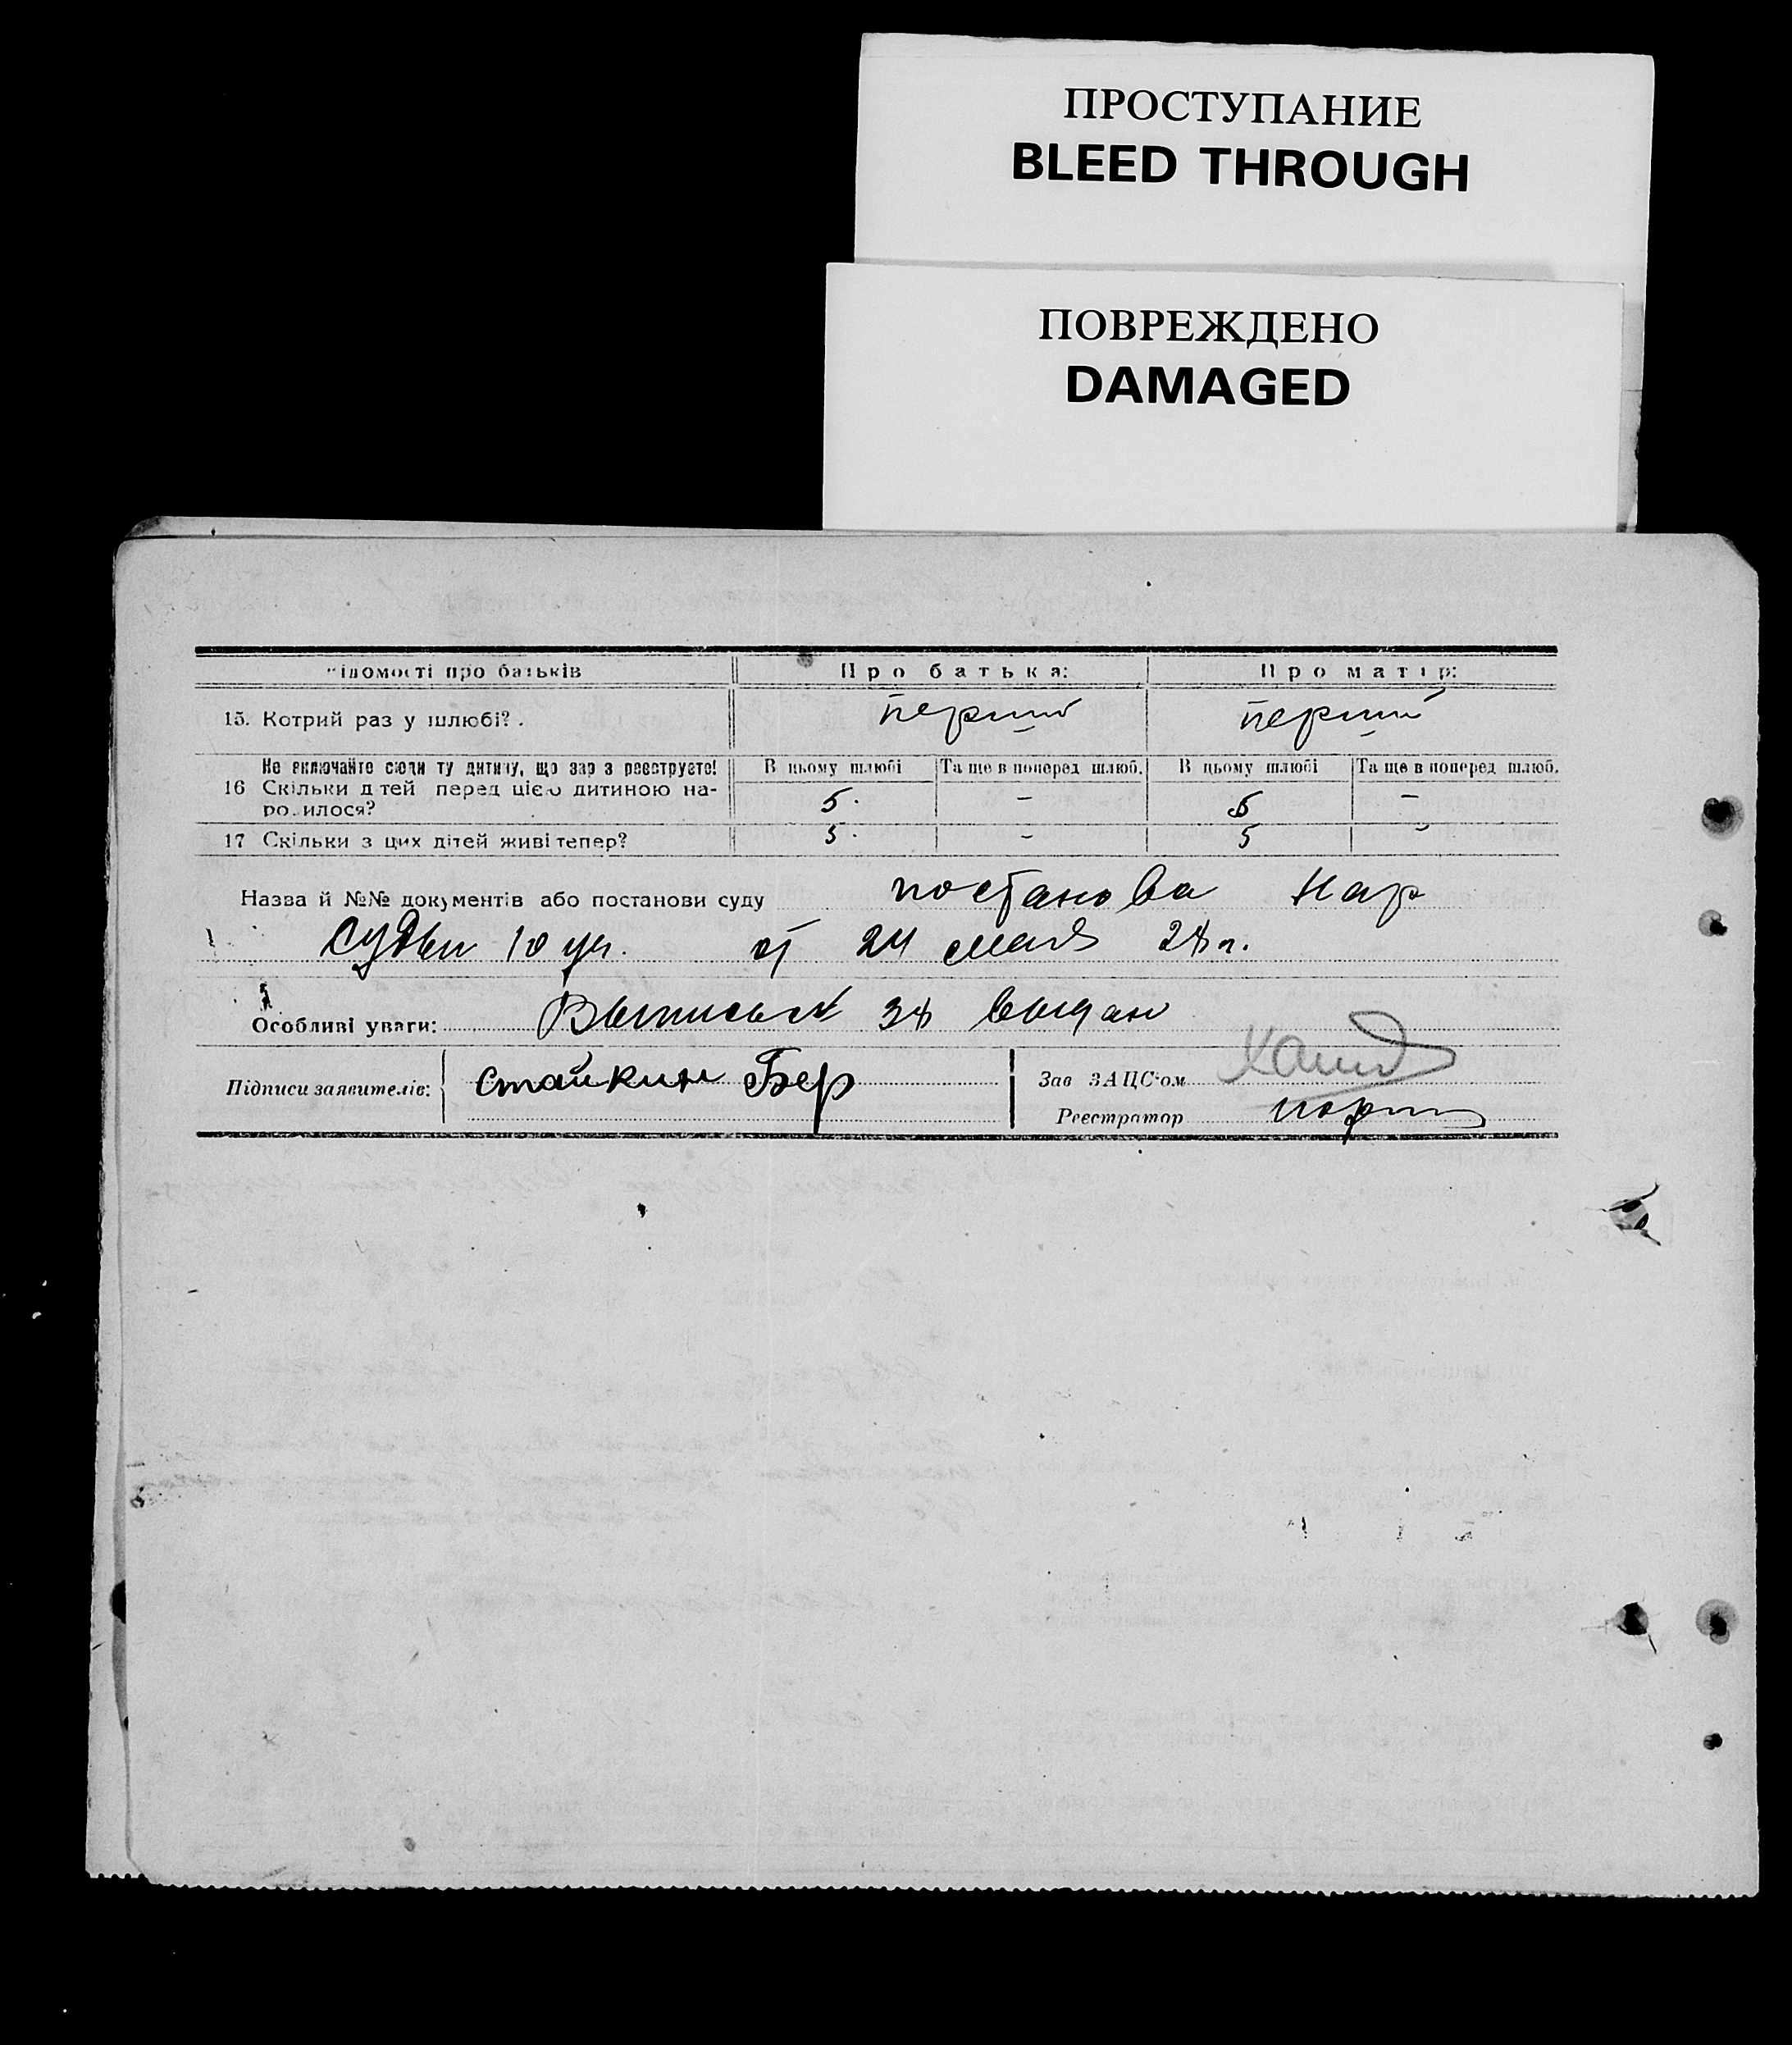 ПРОСТУПАНИЕ
BLEED THROUGH
ПОВРЕЖДЕНО
DAMAGED
ідомості про батьків Про батька: Про матір:
15. Котрий раз у шлюбі? . перший перший
Не включайте сюди ту дитину, що зараз реєструєте! В цьому шлюбі Та ще в поперед шлюб. В цьому шлюбі Та ще в поперед шлюб.
16 Скільки дітей перед цією дитиною на-
родилося? 5. – 5 –
17 Скільки з цих дітей живі тепер? 5. – 5 –
Назва й №№ документів або постанови суду постанова Нар
судьи 10 уч. от 24 мая 28 г.
Особливі уваги: Выписька 38 выдан
Підписи заявителів: Стайкин Бер Зав ЗАЦС'ом
Реєстратор